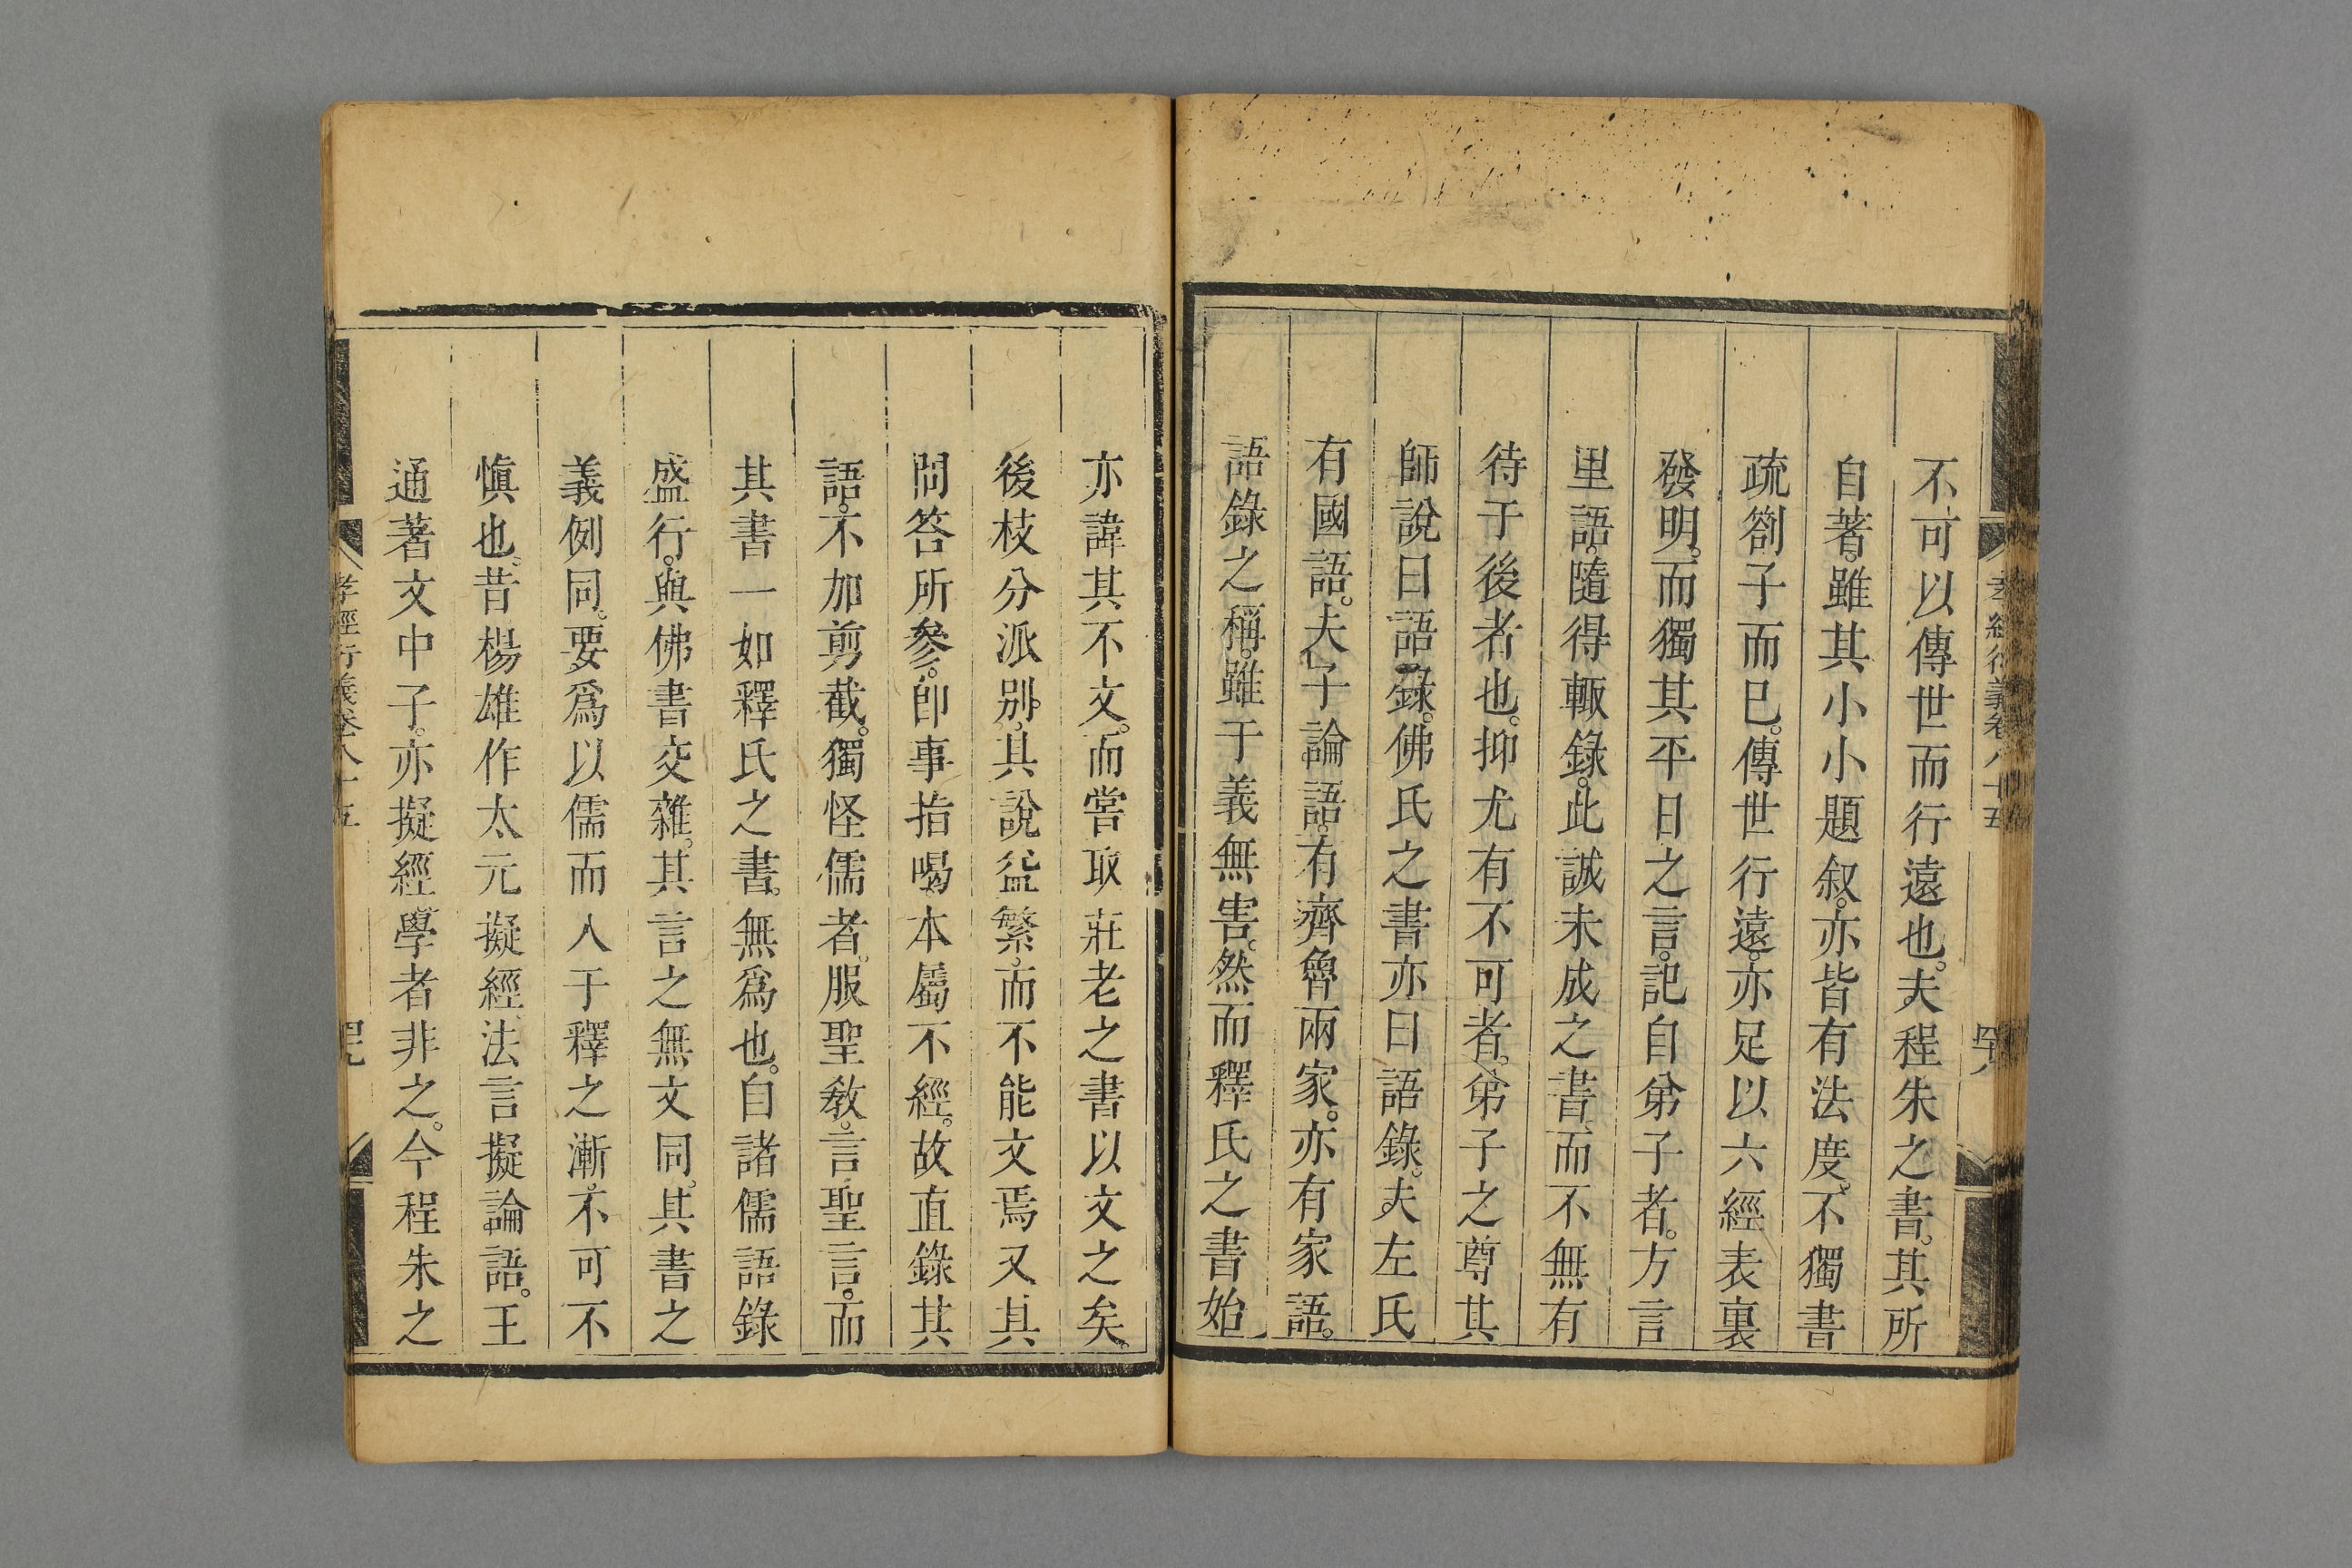 不可以傳世而行遠也。夫程朱之書。其所
自著。雖其小小題叙。亦皆有法度。不獨書
疏劄子而已。傳世行遠。亦足以六經表裏
發明。而獨其平日之言。記自弟子者。方言
里語。隨得輙錄。此誠未成之書。而不無有
待于後者也。抑尤有不可者。弟子之尊其
師說曰語錄。佛氏之書亦曰語錄。夫左氏
有國語。夫子論語。有齊魯兩家。亦有家語。
語錄之稱。雖于義無害。然而釋氏之書始
亦諱其不文。而嘗取莊老之書以文之矣。
後枝分派別。其說益繁。而不能文焉又其
問答所參。卽事指喝本屬不經。故直錄其
語。不加剪截。獨怪儒者。服聖敎。言聖言。而
其書一如釋氏之書。無爲也。自諸儒語錄
盛行。與佛書交雜。其言之無文同。其書之
義例同。要爲以儒而入于釋之漸。不可不
愼也。昔楊雄作太元擬經。法言擬論語。王
通著文中子。亦擬經學者非之。今程朱之
孝經衍義卷八十五